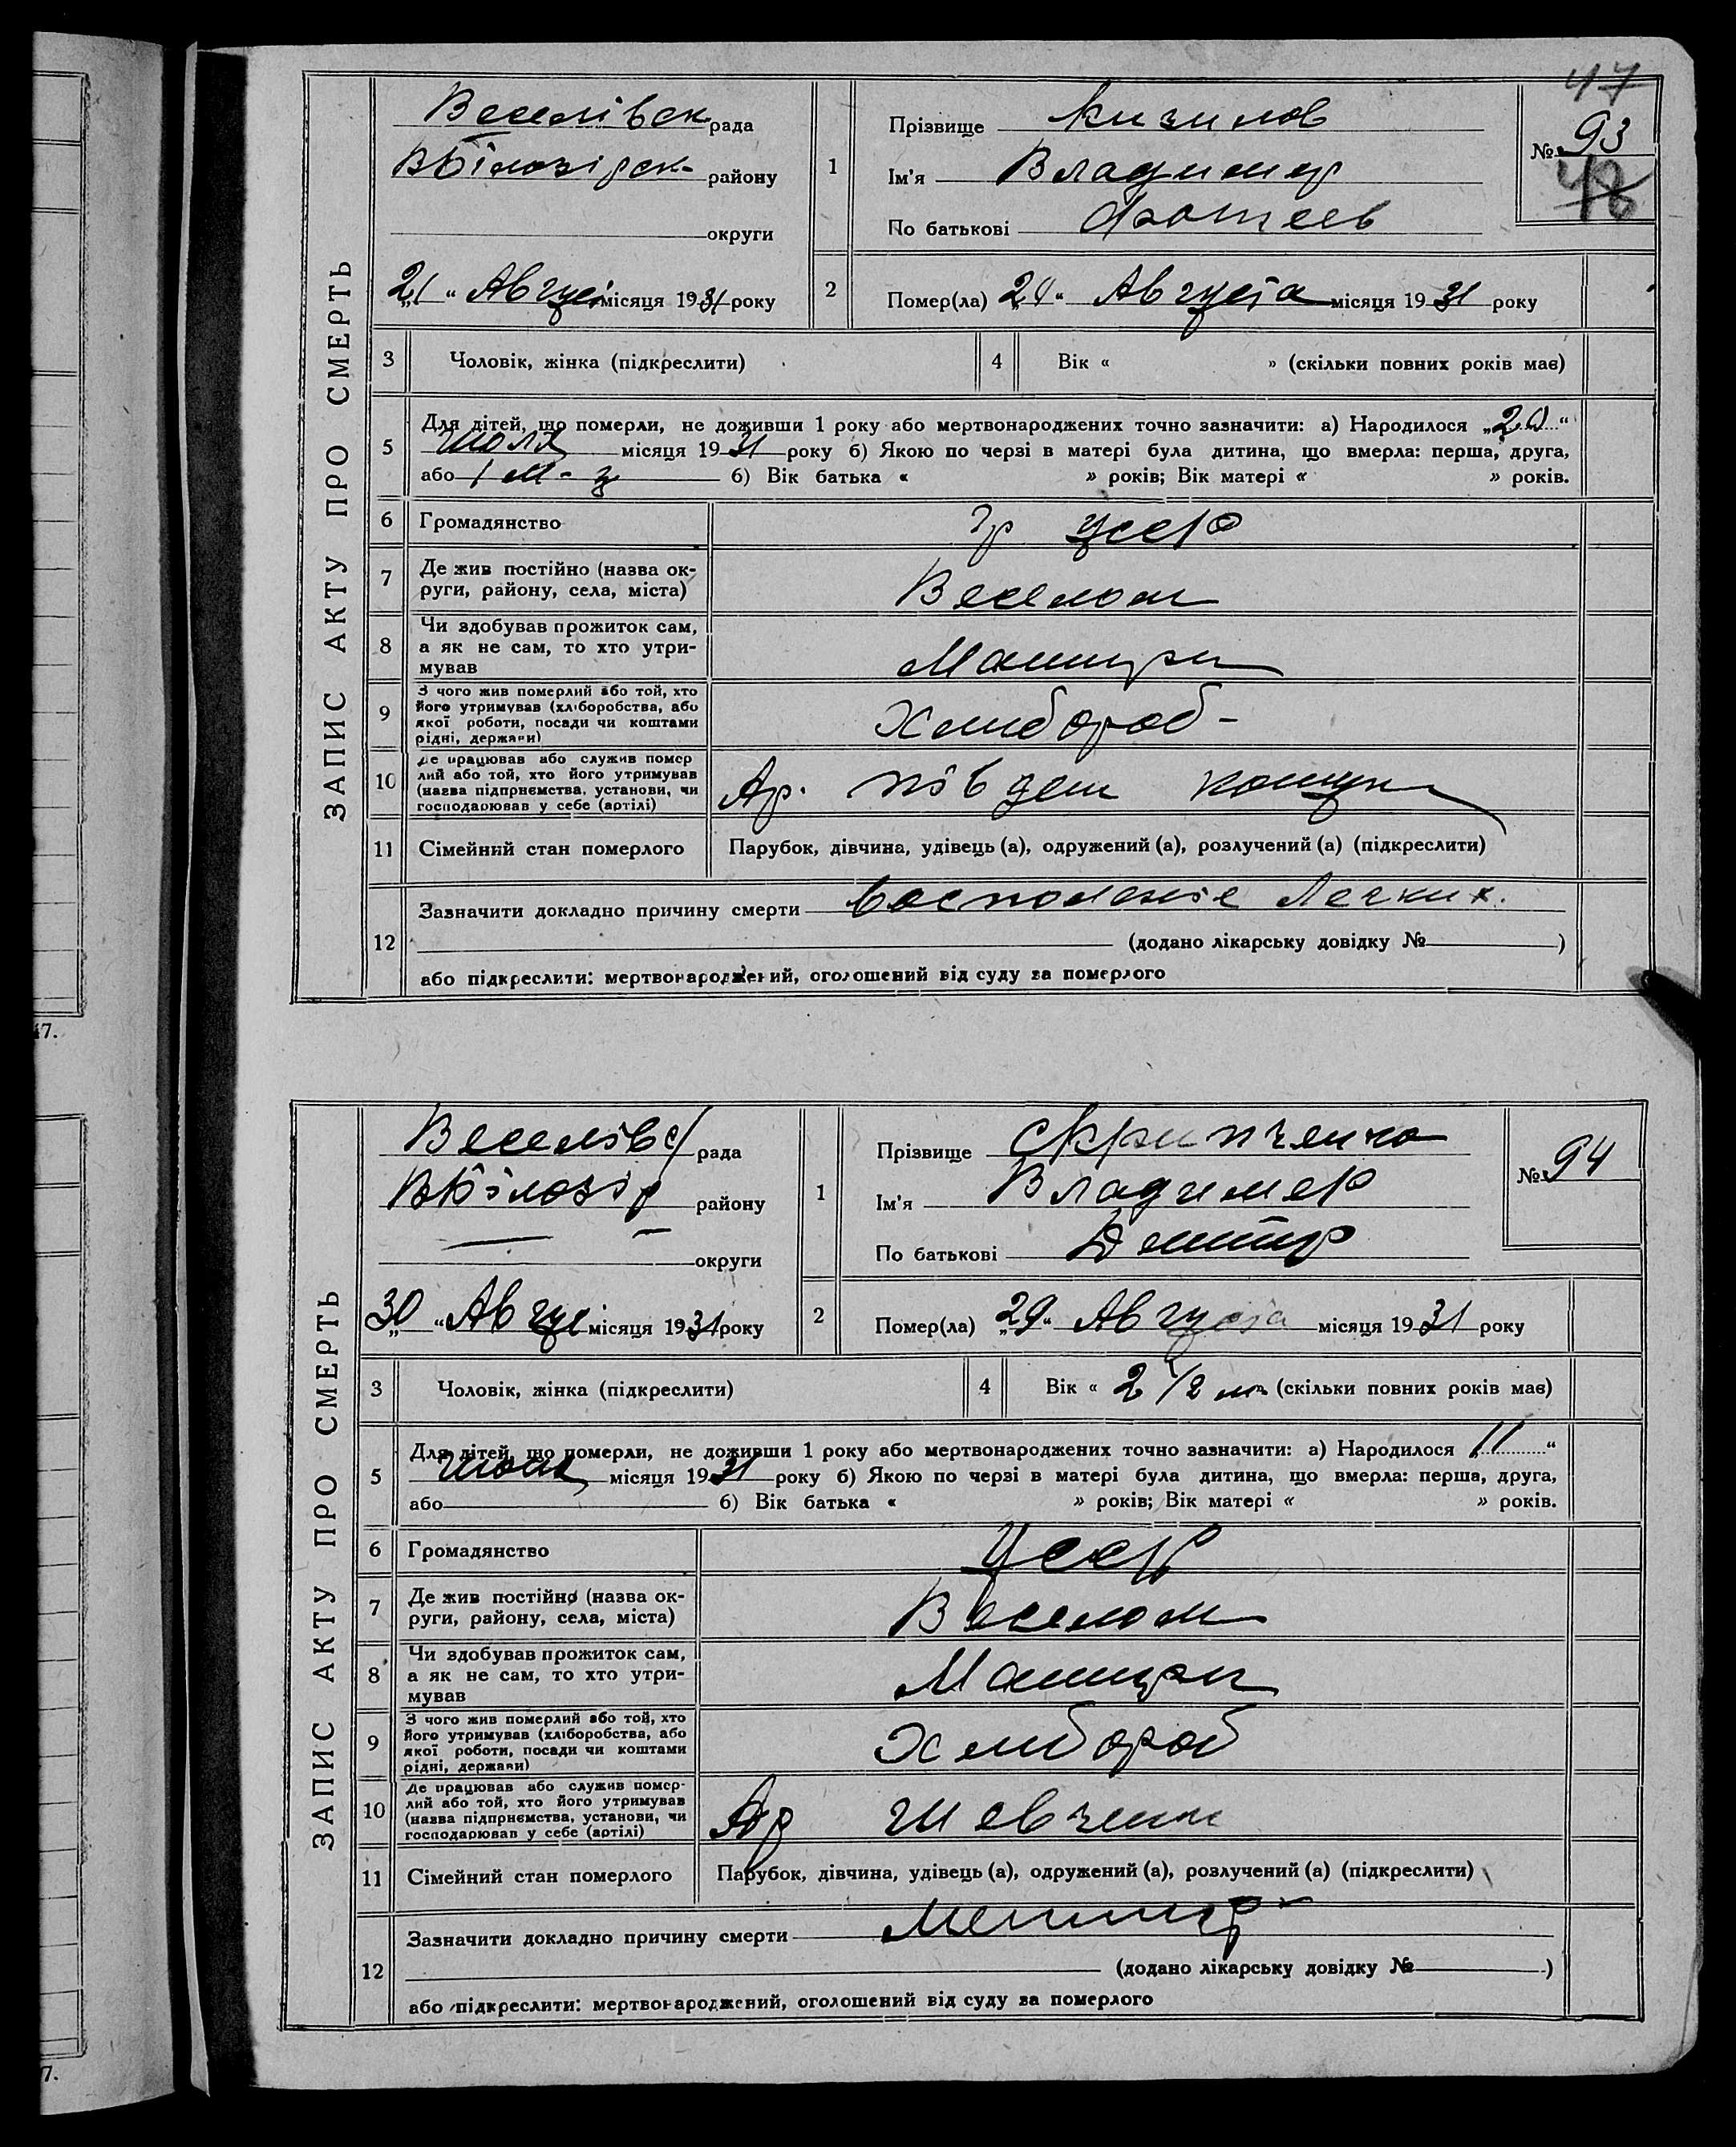 47
ЗАПИС АКТУ ПРО СМЕРТЬ
Веселівск рада
ВБілозірск- району
округи
1
Прізвище Кизилов
Ім'я Владимир
По батькові Фотеев
№ 93
48
„21“ Август місяця 1931 року
2
Помер(ла) „21“ Августа місяця 1931 року
3 Чоловік, жінка (підкреслити)
4 Вік « » (скільки повних років має)
5
Для дітей, що померли, не доживши 1 року або мертвонароджених точно зазначити: а) Народилося „20“
июля місяця 1931 року б) Якою по черзі в матері була дитина, що вмерла: перша, друга,
або 1 м-ц б) Вік батька « » років; Вік матері « » років.
6 Громадянство гр УССР
7 Де жив постійно (назва ок-
руги, району, села, міста) Веселом
8 Чи здобував прожиток сам,
а як не сам, то хто утри-
мував Матери
9 З чого жив померлий або той, хто
його утримував (хліборобства, або
якої роботи, посади чи коштами
рідні, держави) Хлибороб-
10 Де працював або служив помер
лий або той, хто його утримував
(назва підприємства, установи, чи
господарював у себе (артілі) Ар. Південн
11 Сімейний стан померлого Парубок, дівчина, удівець (а), одружений (а), розлучений (а) (підкреслити)
12 Зазначити докладно причину смерти Восполение Легких.
(додано лікарську довідку № )
або підкреслити: мертвонароджений, оголошений від суду за померлого
ЗАПИС АКТУ ПРО СМЕРТЬ
Веселівс/ рада
ВБілозір району
— — округи
1
Прізвище Скрипченко
Ім'я Владимер
По батькові Дмитр
№ 94
„30“ Авгус місяця 1931 року
2
Помер(ла) „29“ Августа місяця 1931 року
3 Чоловік, жінка (підкреслити)
4 Вік « 2 1/2 м (скільки повних років має)
5
Для дітей, що померли, не доживши 1 року або мертвонароджених точно зазначити: а) Народилося 11“
місяця 1931 року б) Якою по черзі в матері була дитина, що вмерла: перша, друга,
або б) Вік батька « » років; Вік матері « » років.
6 Громадянство УССР
7 Де жив постійно (назва ок-
руги, району, села, міста) Веселом
8 Чи здобував прожиток сам,
а як не сам, то хто утри-
мував Матери
9 З чого жив померлий або той, хто
його утримував (хліборобства, або
якої роботи, посади чи коштами
рідні, держави) Хлибороб
10 Де працював або служив помер-
лий або той, хто його утримував
(назва підприємства, установи, чи
господарював у себе (артілі) Ар Шевченк
11 Сімейний стан померлого Парубок, дівчина, удівець (а), одружений (а), розлучений (а) (підкреслити)
12 Зазначити докладно причину смерти
(додано лікарську довідку № )
або підкреслити: мертвонароджений, оголошений від суду за померлого
47.
7.